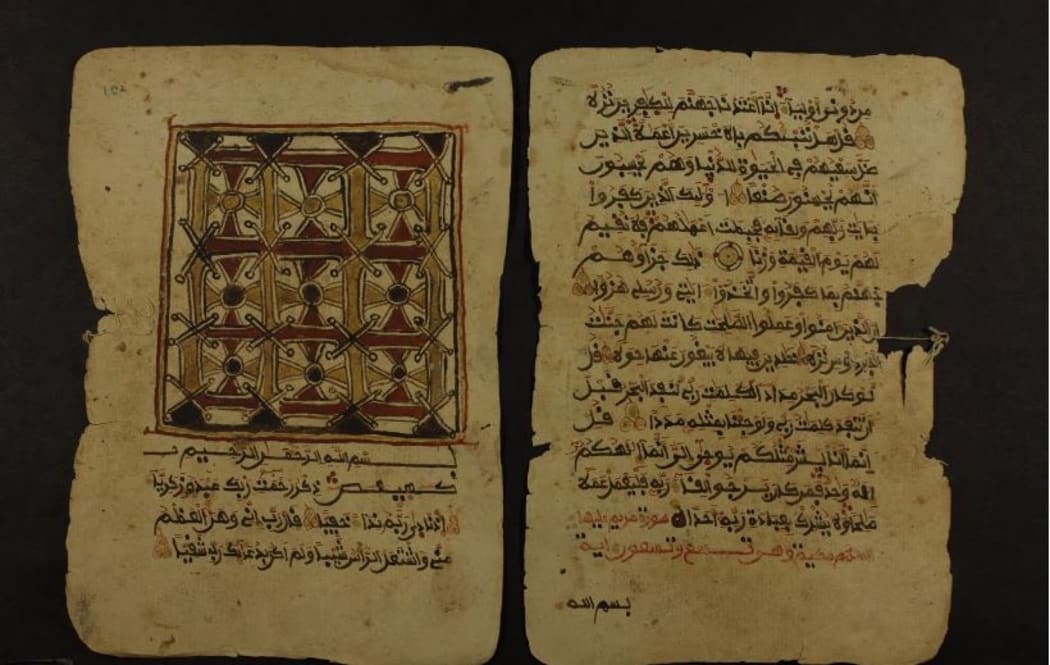 من دونى أولياء إنا أعتدنا جهنم للكفرين نزلا
قل هل ننبئكم بالاخسرين أعملا الذين
ضل سعيهم فى الحيوة الدنيا وهم يحسبون
أنهم يحسنون صنعا أولئك الذين كفروا
بئايت ربهم ولقائه فحبطت أعملهم فلا نقيم
لهم يوم القيمة وزنا ذلك جزاؤهم
جهنم بما كفروا واتخذوا ءايتى ورسلى هزؤا
إن الذين ءامنوا وعملوا الصلحت كانت لهم جنت
الفردوس نزلا خلدين فيها لا يبغون عنها حولا قل
لو كان البحر مدادا لكلمت ربى لنفد البحر قبل
أن تنفد كلمت ربى ولو جئنا بمثله مددا قل
إنما أنا بشر مثلكم يوحى إلى أنما إلهكم
إله وحد فمن كان يرجوا لقاء ربه فليعمل عملا
صلحا ولا يشرك بعبادة ربه أحدا سورة مريم عليها
السلم مكية وهى تسع وتسعون اية
بسم الله
بسم الله الرحمن الرحيم
كهيعص ذكر رحمت ربك عبده زكريا
إذ نادى ربه نداء خفيا قال رب انى وهن العظم
منى واشتعل الرأس شيبا ولم اكن بدعائك رب شقيا